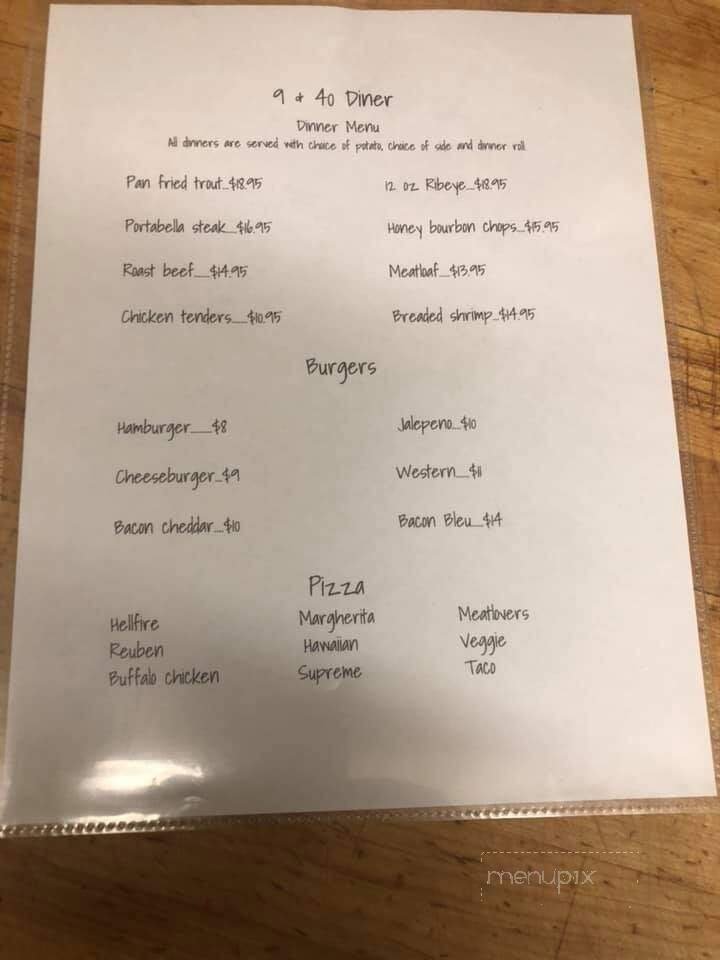 9 & 40 Diner
Dinner Menu
All dinners are served with choice of potato, choice of side and dinner roll
Pan fried trout...$18.95
12 oz Ribeye...$18.95
Portabella steak....$16.95
Honey bourbon chops...$15.95
Roast beef.....$14.95
Meatloaf....$13.95
Chicken tenders.....$10.95
Breaded shrimp...$14.95
Burgers
Hamburger......$8
Jalepeno....$10
Cheeseburger...$9
Western.....$11
Bacon cheddar....$10
Bacon Bleu....$14
Pizza
Hellfire
Margherita
Meatlovers
Reuben
Hawaiian
Veggie
Buffalo chicken
Supreme
Taco
menupix